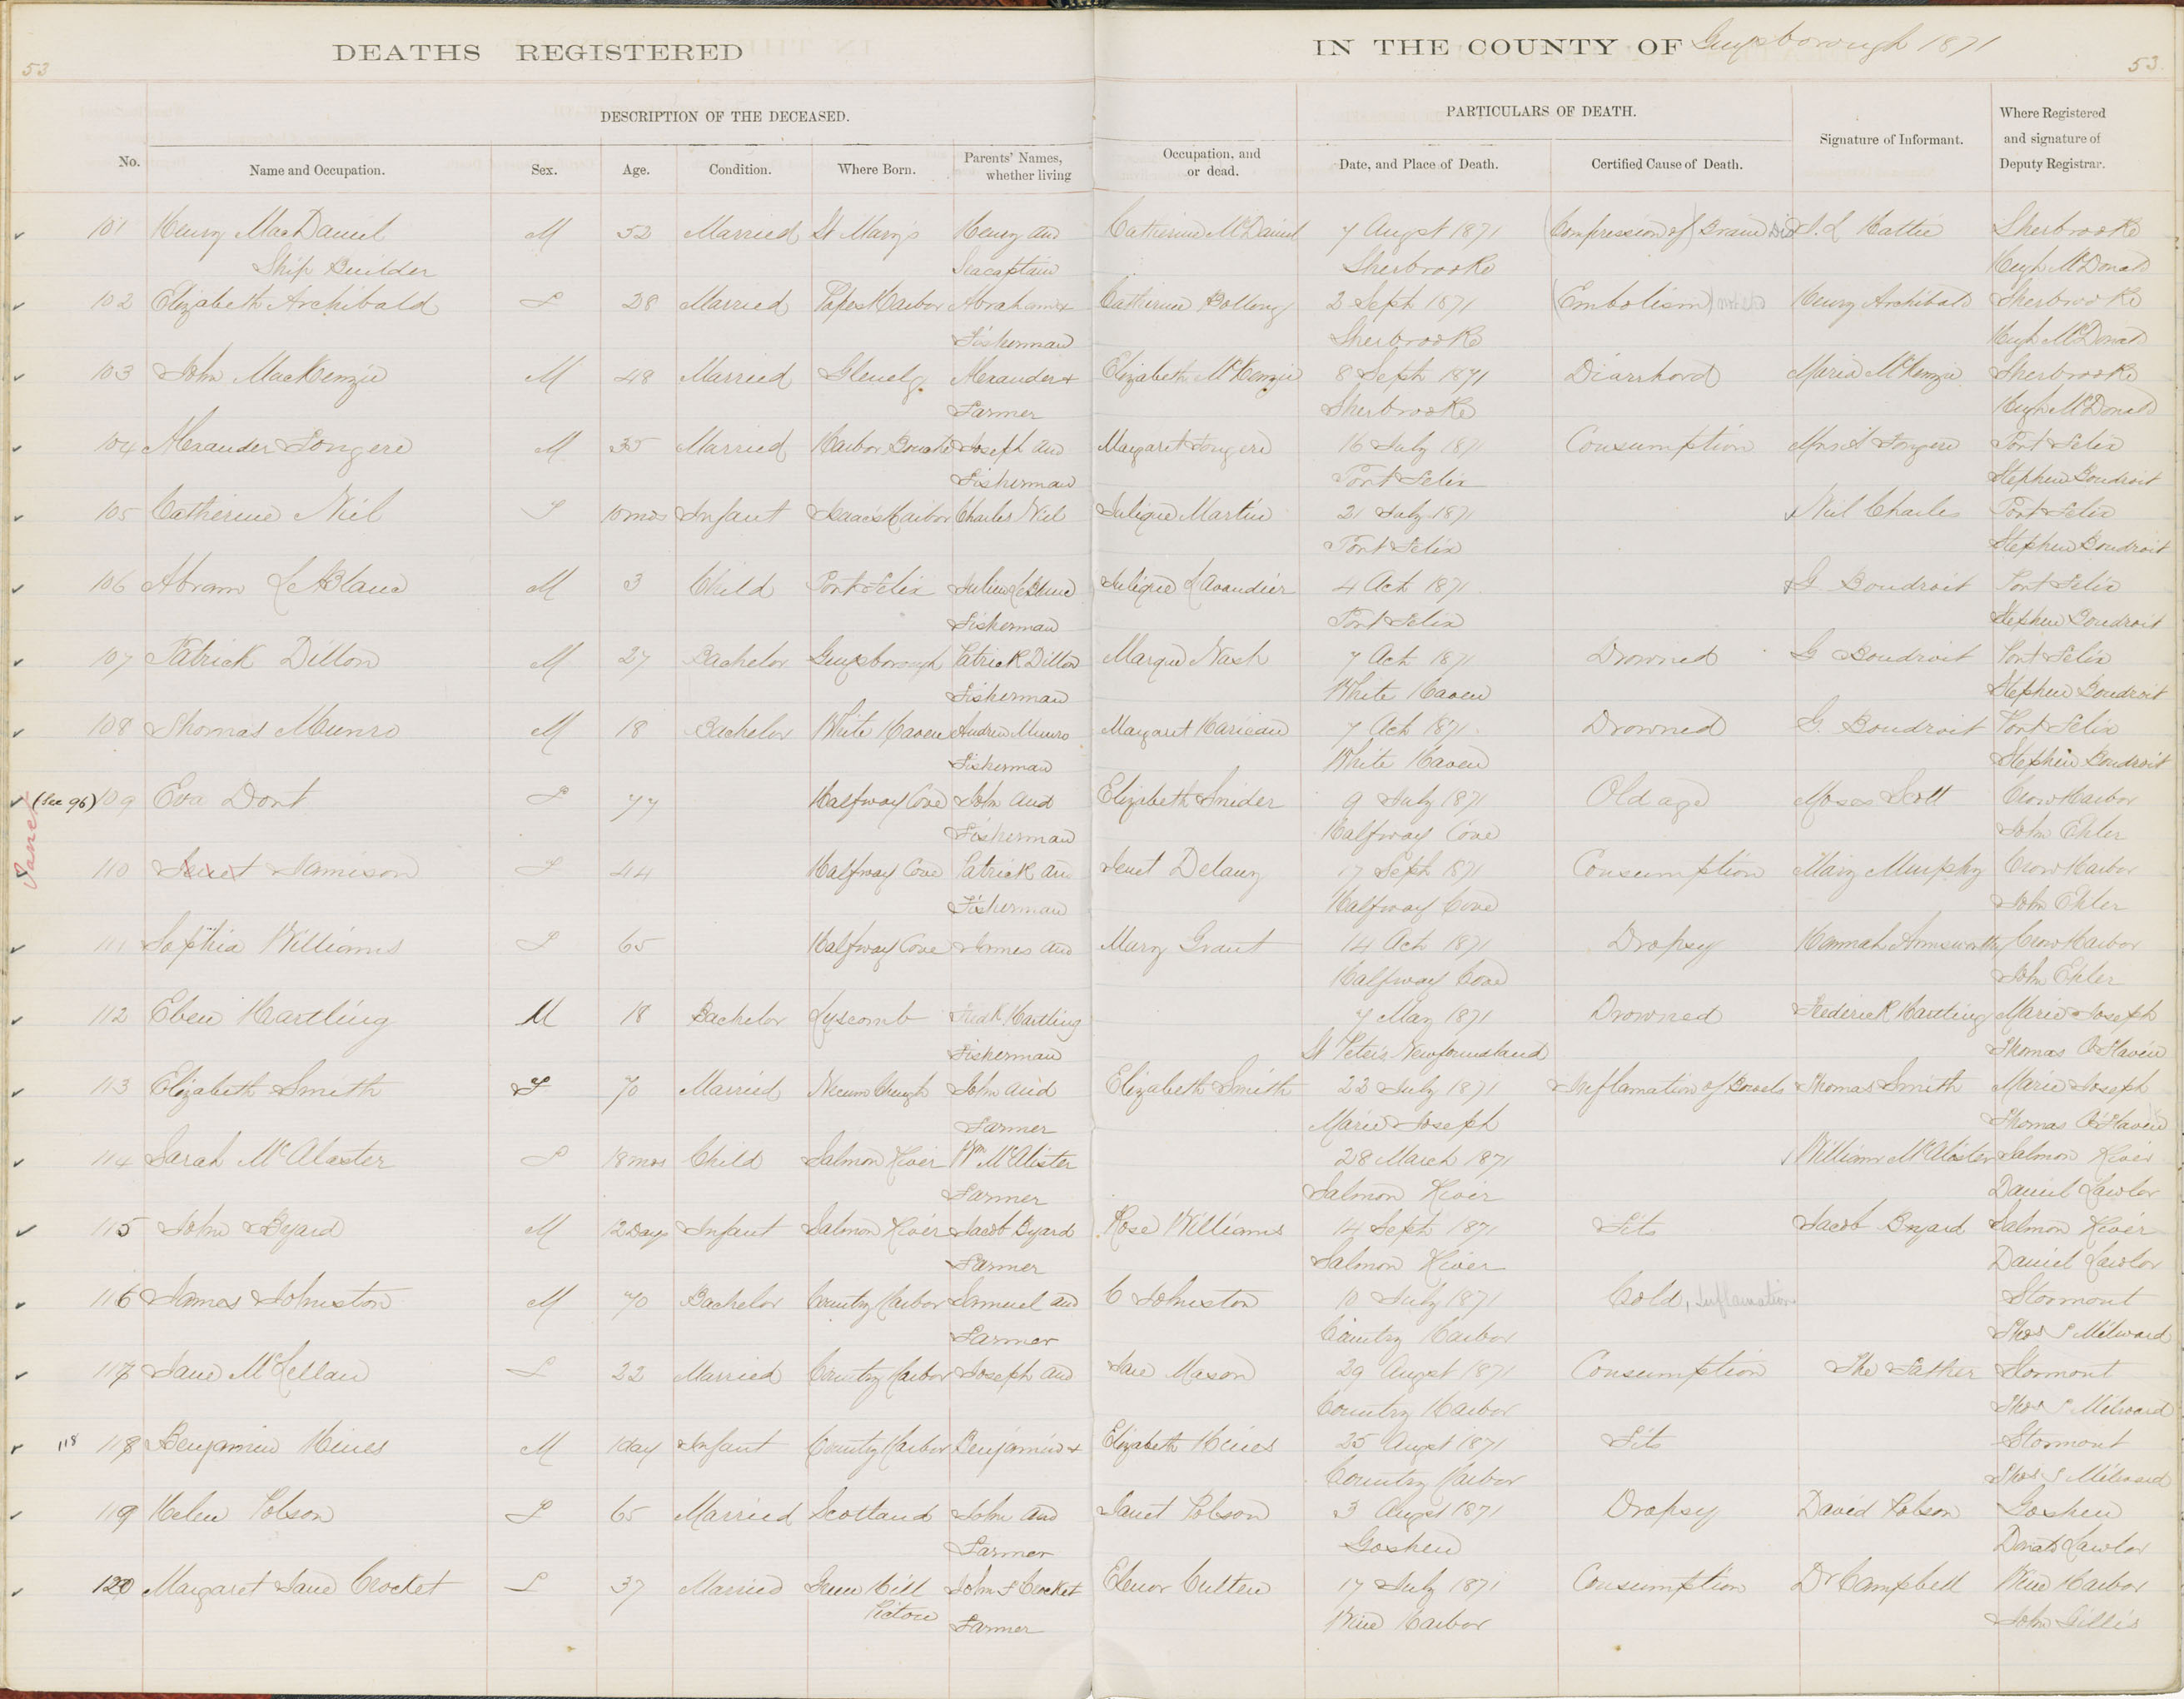 DEATHS REGISTERED IN THE COUNTY OF Guysborough 1871
53 53.
DESCRIPTION OF THE DECEASED. PARTICULARS OF DEATH.
No. Name and Occupation. Sex. Age. Condition. Where Born. Parents' Names, whether living Occupation, and or dead. Date, and Place of Death. Certified Cause of Death. Signature of Informant. Where Registered and signature of Deputy Registrar.
101 Henry MacDaniel M 52 Married St Mary's Henry and Catherine McDaniel 7 Augst 1871 (Compression of) Brain Hattie Sherbrooke
Ship Builder Seacaptain Sherbrooke Hugh McDonald
102 Elizabeth Archibald F 28 Married Popes Harbor Abraham + Catherine Bollong 2 Sept 1871 (Embolism) Henry Archibald Sherbrooke
Fisherman Sherbrooke Hugh McDonald
103 John MacKenzie M 48 Married Glenelg Alexander + Elizabeth McKenzie 8 Sept 1871 Diarrhoea Maria McKenzie Sherbrooke
Farmer Sherbrooke Hugh McDonald
104 Alexander Fongere M 35 Married Harbor Bouche Joseph and Margaret Fongere 16 July 1871 Consumption Mrs A Fongere Port Felix
Fisherman Port Felix Stephen Boudroit
105 Catherine Niel F 10 mos Infant Isaac's Harbor Charles Niel Julique Martin 21 July 1871 Niel Charles Port Felix
Port Felix Stephen Boudroit
106 Abram LeBlanc M 3 Child Port Felix Julien LeBlanc Julique Lavandier 4 Oct 1871 G. Boudroit Port Felix
Fisherman Port Felix Stephen Boudroit
107 Patrick Dillon M 27 Bachelor Guysborough Patrick Dillon Marque Nash 7 Oct 1871 Drowned G Boudroit Port Felix
Fisherman White Haven Stephen Boudroit
108 Thomas Munro M 18 Bachelor White Haven Andrew Munro Margaret 7 Oct 1871 Drowned G. Boudroit Port Felix
Fisherman White Haven Stephen Boudroit
(See 96) 109 Eva Dort F 77 Halfway Cove John and Elizabeth Snider 9 July 1871 Old age Moses Scott Crow Harbor
Fisherman Halfway Cove John Ehler
Janet
110 Jamison F 44 Halfway Cove Patrick and Jenet Delany 17 Sept 1871 Consumption Mary Murphy Crow Harbor
Fisherman Halfway Cove John Ehler
111 Sophia Williams F 65 Halfway Cove James and Mary Grant 14 Oct 1871 Dropsy Hannah Armsworthy Crow Harbor
Halfway Cove John Ehler
112 Eben Hartling M 18 Bachelor Lyscomb Fredk Hartling 7 May 1871 Drowned Frederick Hartling Marie Joseph
Fisherman St Peters Newfoundland Thomas O'Havin
113 Elizabeth Smith F 70 Married Necum Cheugh John and Elizabeth Smith 22 July 1871 Inflamation of Bowels Thomas Smith Marie Joseph
Farmer Marie Joseph Thomas O'Havin
114 Sarah McAlaster F 18 mos Child Salmon River Wm McAlister 28 March 1871 William McAlister Salmon River
Farmer Salmon River Daniel Lawlor
115 John Byard M 12 Days Infant Salmon River Jacob Byard Rose Williams 14 Sept 1871 Fits Jacob Byard Salmon River
Farmer Salmon River Daniel Lawlor
116 James Johnston M 70 Bachelor Country Harbor Samuel and C Johnston 10 July 1871 Cold, Inflamation Stormont
Farmer Country Harbor Thos S Milward
117 Jane McLellan F 22 Married Country Harbor Joseph and Jane Mason 29 Augst 1871 Consumption The Father Stormont
Country Harbor Thos S Milward
118 118 Benjamin Hines M 1 day Infant Country Harbor Benjamin + Elizabeth Hines 25 Augst 1871 Fits Stormont
Country Harbor Thos S Milward
119 Helen Polson F 65 Married Scotland John and Janet Polson 3 Augst 1871 Dropsy David Polson Goshen
Farmer Goshen Donald Lawlor
120 Margaret Jane Crocket F 37 Married Green Hill John F Crocket Elenor Cutten 17 July 1871 Consumption Dr Campbell Wine Harbor
Pictou Farmer Wine Harbor John Gillis